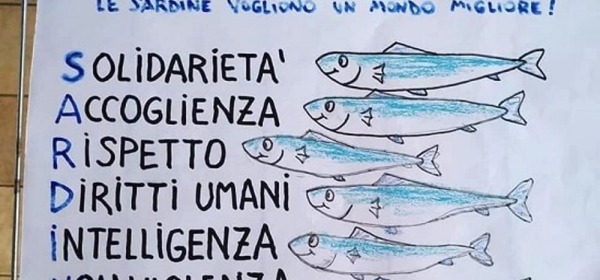 LE SARDINE VOGLIONO UN MONDO MIGLIORE!
SOLIDARIETA'
ACCOGLIENZA
RISPETTO
DIRITTI UMANI
INTELLIGENZA
NONVIOLENZA